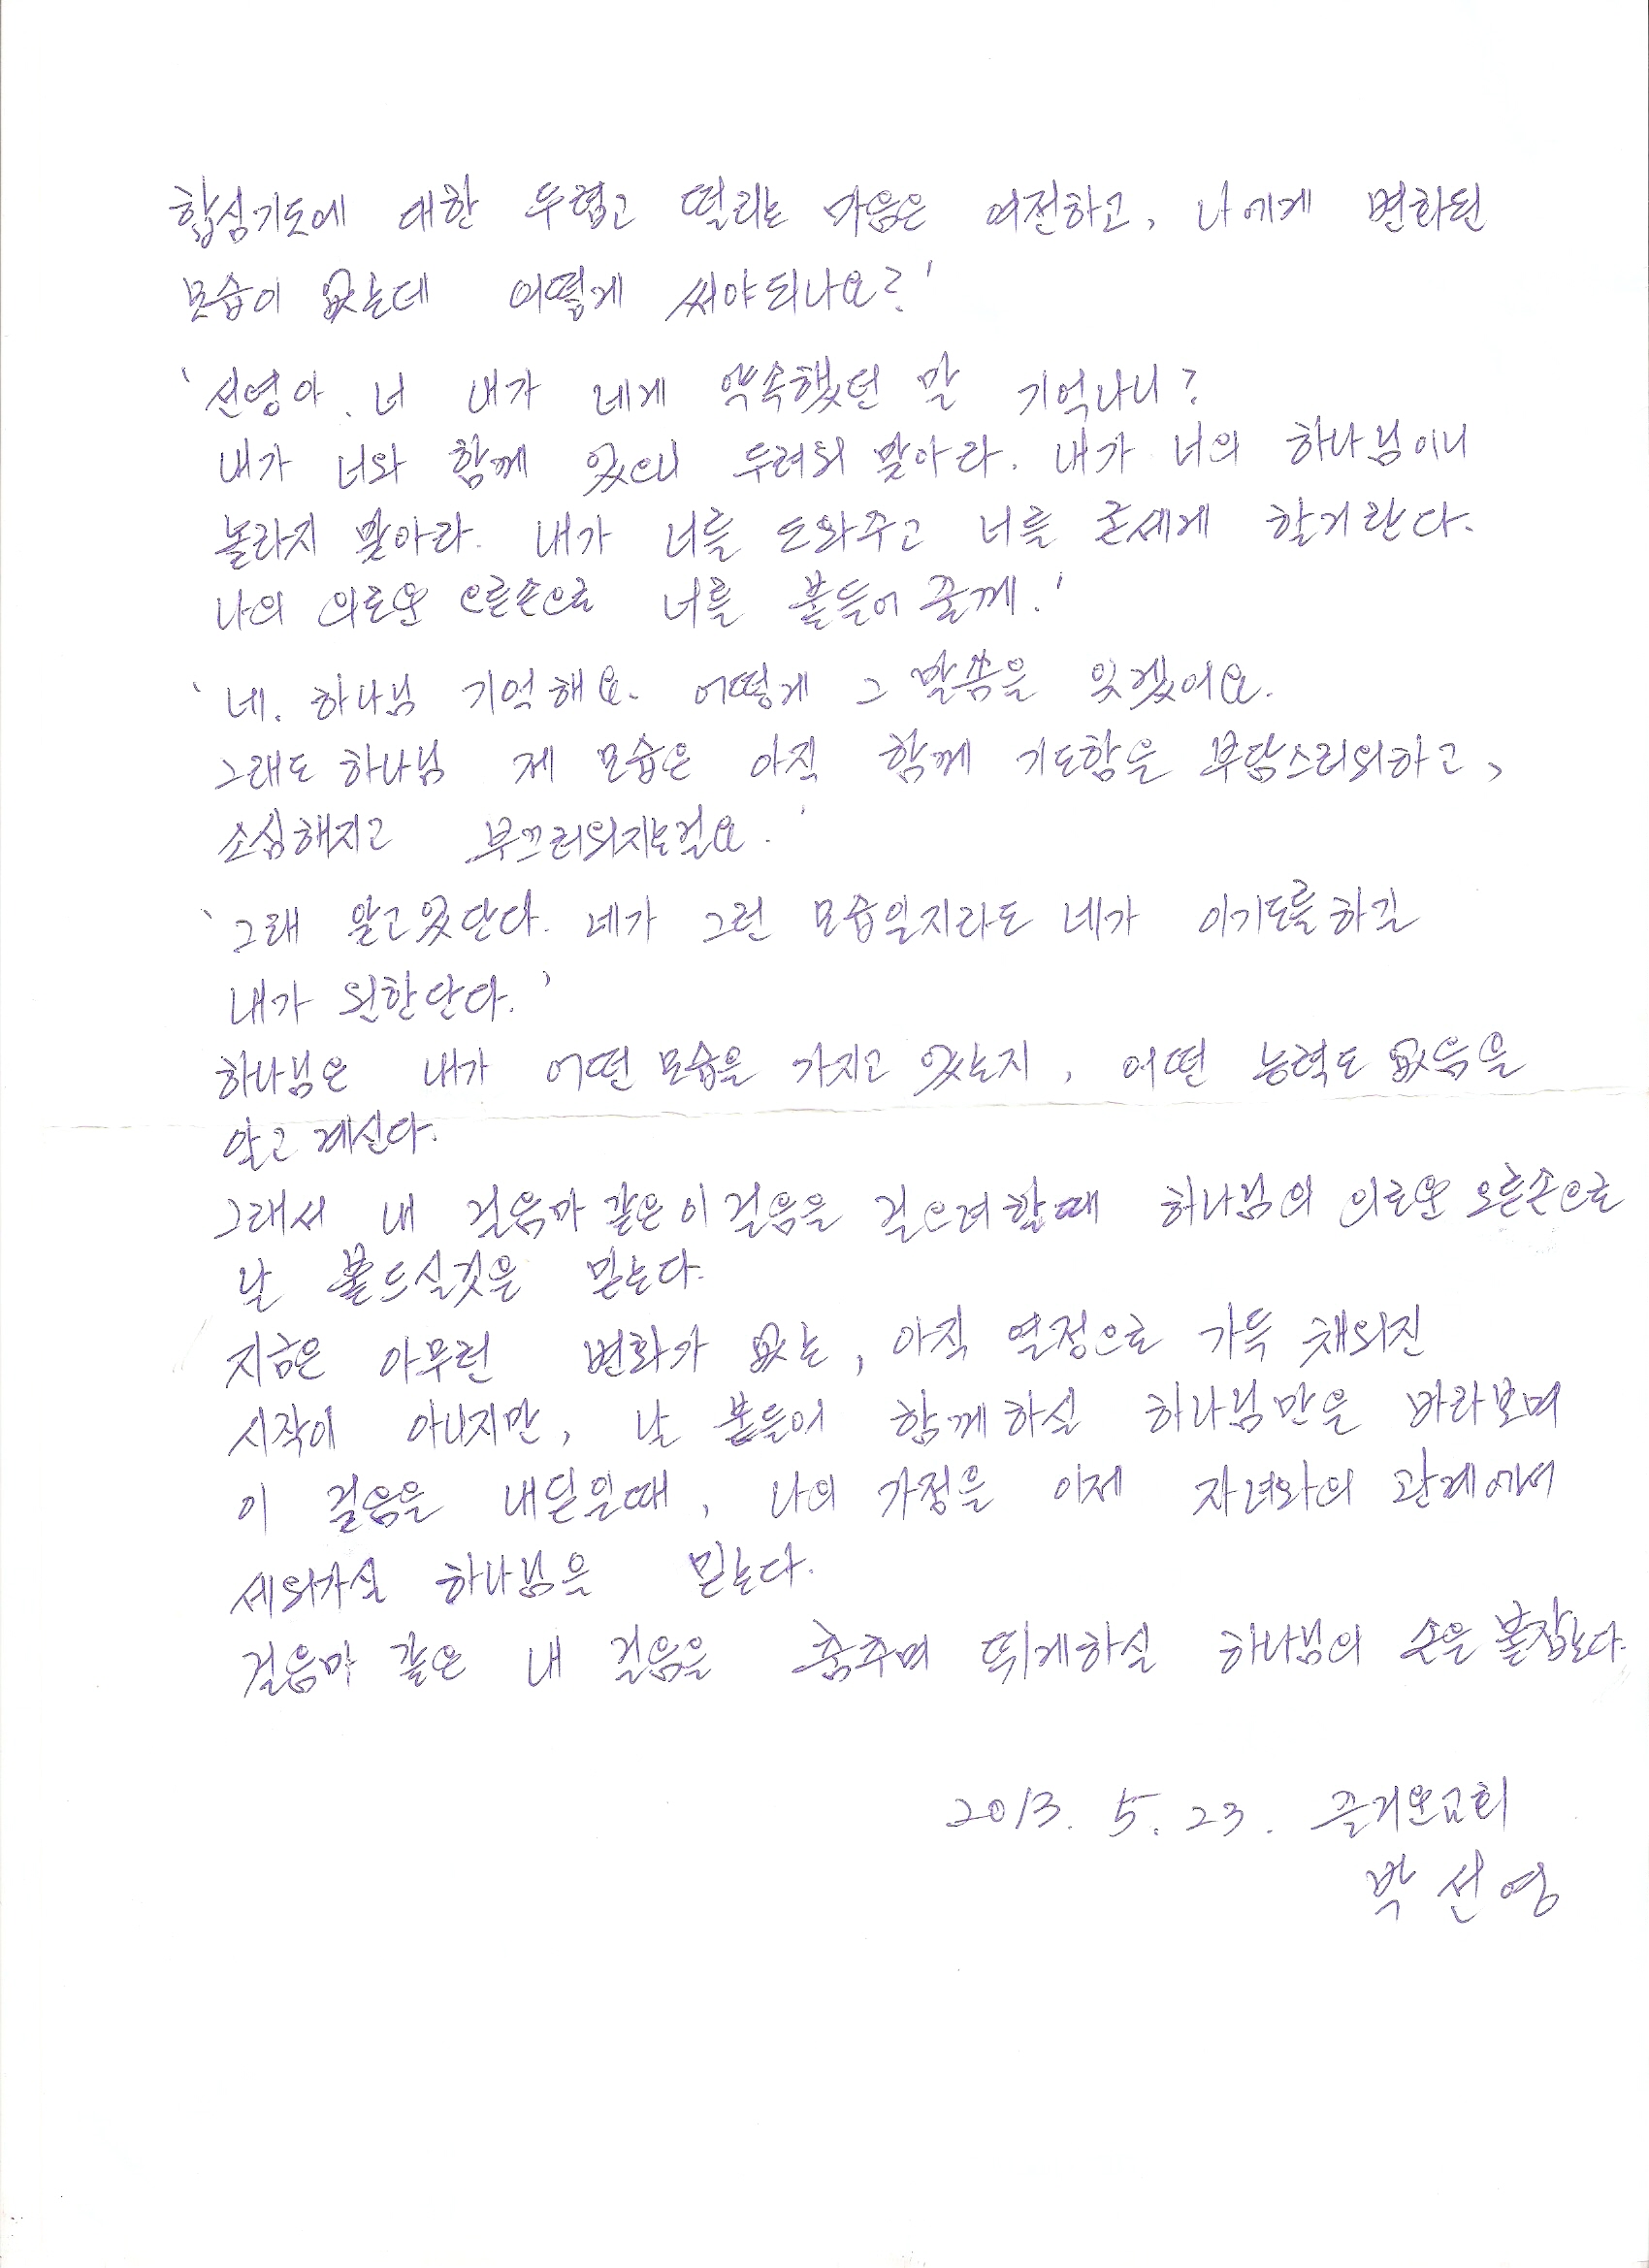 합심기도에 대한 두렵고 떨리는 마음은 여전하고, 나에게 변화된
모습이 없는데 어떻게 써야되나요?'
'선영아. 너 내가 네게 약속했던 말 기억나니?
내가 너와 함께 있으니 두려워 말아라. 내가 너의 하나님이니
놀라지 말아라. 내가 너를 도와주고 너를 굳세게 할거란다.
나의 의로운 오른손으로 너를 붙들어 줄께.'
'네. 하나님 기억해요. 어떻게 그 말씀을 잊겠어요.
그래도 하나님 제 모습은 아직 함께 기도함을 부담스러워하고,
소심해지고 부끄러워지는걸요.'
'그래 알고있단다. 네가 그런 모습일지라도 네가 이기도를하길
내가 원한단다.'
하나님은 내가 어떤 모습을 가지고 있는지, 어떤 능력도 없음을
알고 계신다.
그래서 내 걸음마 같은 이 걸음을 걸으려 할때 하나님의 의로운 오른손으로
날 붙드실것을 믿는다.
지금은 아무런 변화가 없는, 아직 열정으로 가득 채워진
시작이 아니지만, 날 붙들어 함께하실 하나님만을 바라보며
이 걸음을 내딛일때, 나의 가정을 이제 자녀와의 관계에서
세워가실 하나님을 믿는다.
걸음마 같은 내 걸음을 춤추며 뛰게하실 하나님의 손을 붙잡는다.
2013. 5. 23. 즐거운교회
박선영